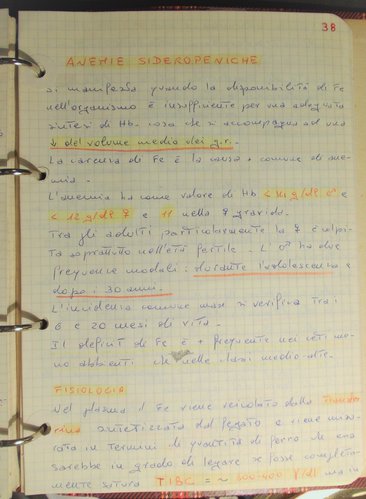 38
ANEMIE SIDEROPENICHE
si manifesta quando la disponibilità di Fe
nell'organismo è insufficiente per una adeguata
sintesi di Hb. cosa che si accompagna ad una
↓ del volume medio dei g.r.
La carenza di Fe è la causa + comune di ane-
mia.
L'anemia ha come valore di Hb < 14 g/dl ♂ e
< 12 g/dl ♀ e 11 nella ♀ gravida.
Tra gli adulti particolarmente la ♀ è colpi-
ta soprattutto nell'età fertile. L'♂ ha due
frequenze modali: durante l'adolescenza e
dopo i 30 anni.
L'incidenza comune max si verifica tra i
6 e 20 mesi di vita.
Il deficit di Fe è + frequente nei ceti me-
no abbienti che nelle classi medio-alte.
FISIOLOGIA
Nel plasma il Fe viene veicolato dalla Transfer
rina sintetizzata dal fegato e viene misu-
rata in termini di quantità di ferro che essa
sarebbe in grado di legare se fosse completa-
mente satura TIBC = ~ 300-400 γ/dl ma in